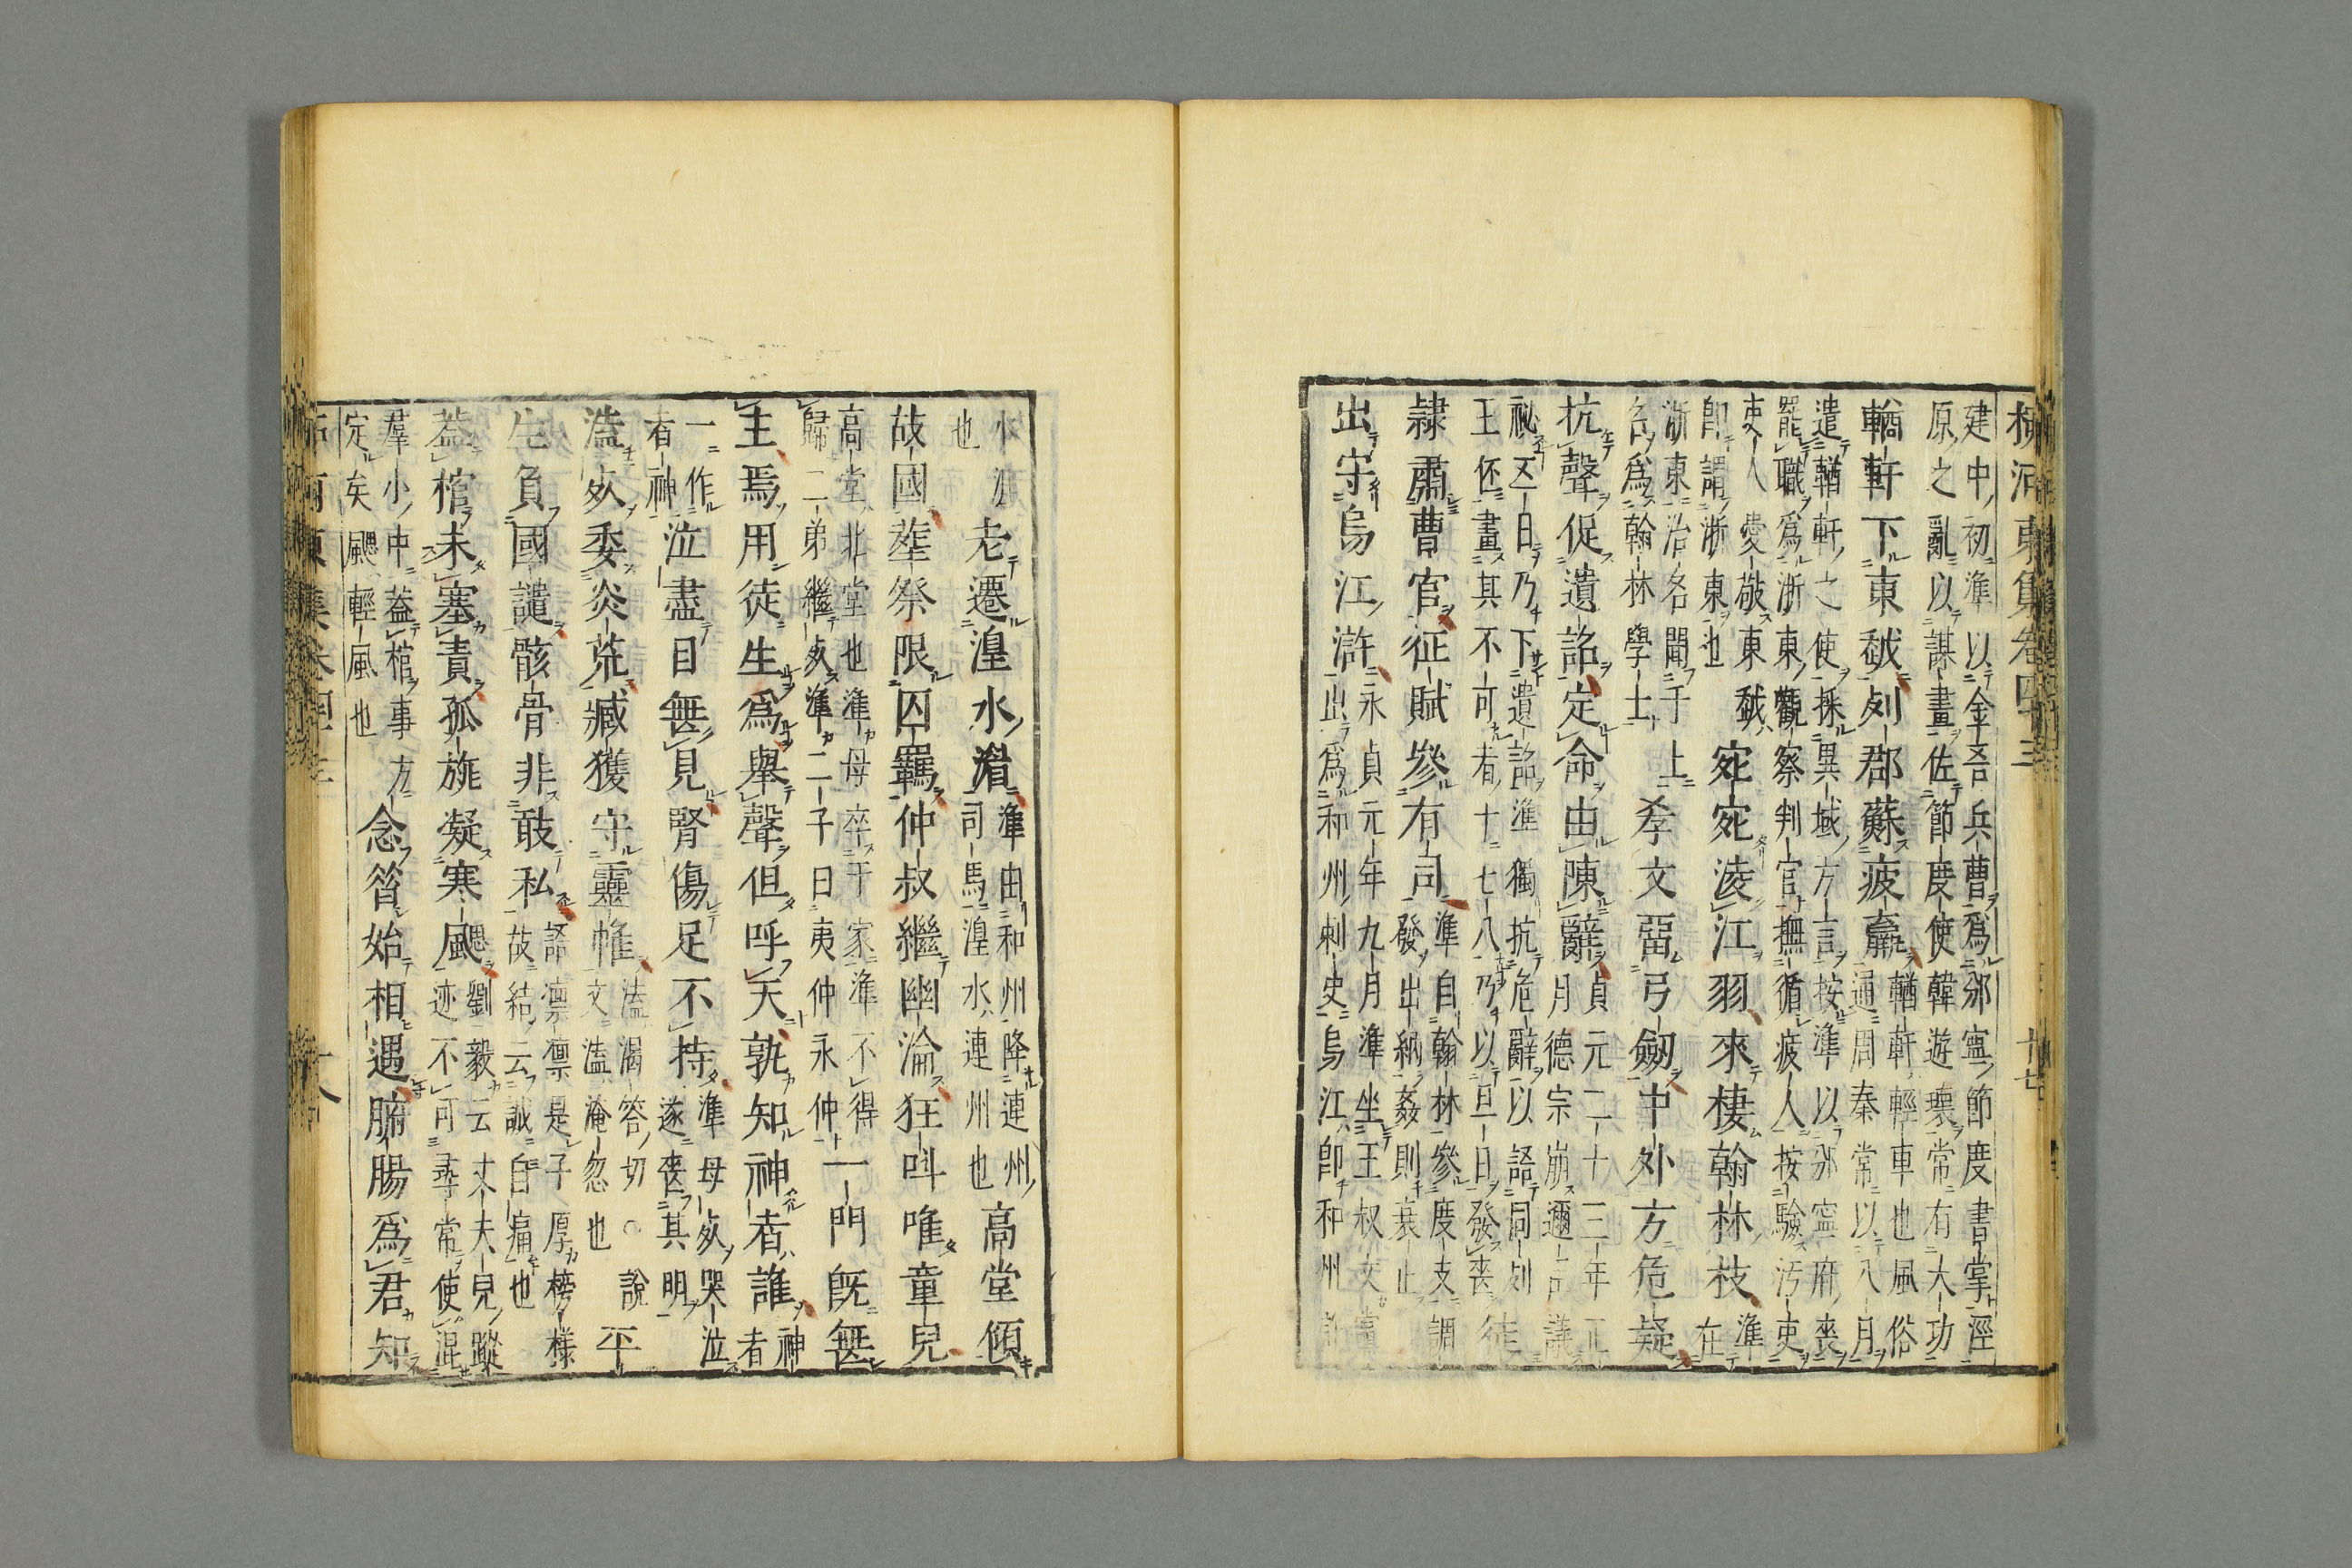 柳河東集卷四三 十七
建中初準以金吾兵曹爲邠寧節度書掌涇
原之亂以謀畫佐節度使韓遊瓌常有大功
輶軒下東越列郡蘇疲羸輶軒輕車也風俗
通周秦常以八月
遣輶軒之使採異域方言按準以邠寧府喪
罷職爲浙東觀察判官撫循疲人按驗汚吏
吏人愛敬東越
卽謂浙東也 宛宛凌江羽來棲翰林枝準
在
浙東治名聞于上
召爲翰林學士 孝文留弓劒中外方危疑
抗聲促遺詔定命由陳辭貞元二十三年正
月德宗崩邇臣議
祕五日乃下遺詔準獨抗危辭以語同列
王伾畫其不可者十七八乃以旦日發喪
隷肅曹官征賦參有司準自翰林參度支調
發出納姦則衰止
出守烏江滸永貞元年九月準坐王叔文黨
出爲和州刺史烏江卽和州
也
老遷湟水湄準由和州降連州
司馬湟水連州也 高堂傾
故國葬祭限囚羈仲叔繼幽淪狂叫唯童兒
高堂北堂也準母卒于家準不得
歸二弟繼死準二子曰夷仲永仲 一門旣無
主焉用徒生爲舉聲但呼天孰知神者誰神
者
一作
者神 泣盡目無見腎傷足不持準母死哭泣
遂喪其明
溘死委炎荒臧獲守靈帷溘渴答切○說
文溘淹忽也 平
生負國譴骸骨非敢私
蓋棺未塞責孤旐凝寒颸劉毅云丈夫兒蹤
迹不可尋常使混
羣小中蓋棺事方
定矣颸輕風也 念昔始相遇腑腸爲君知